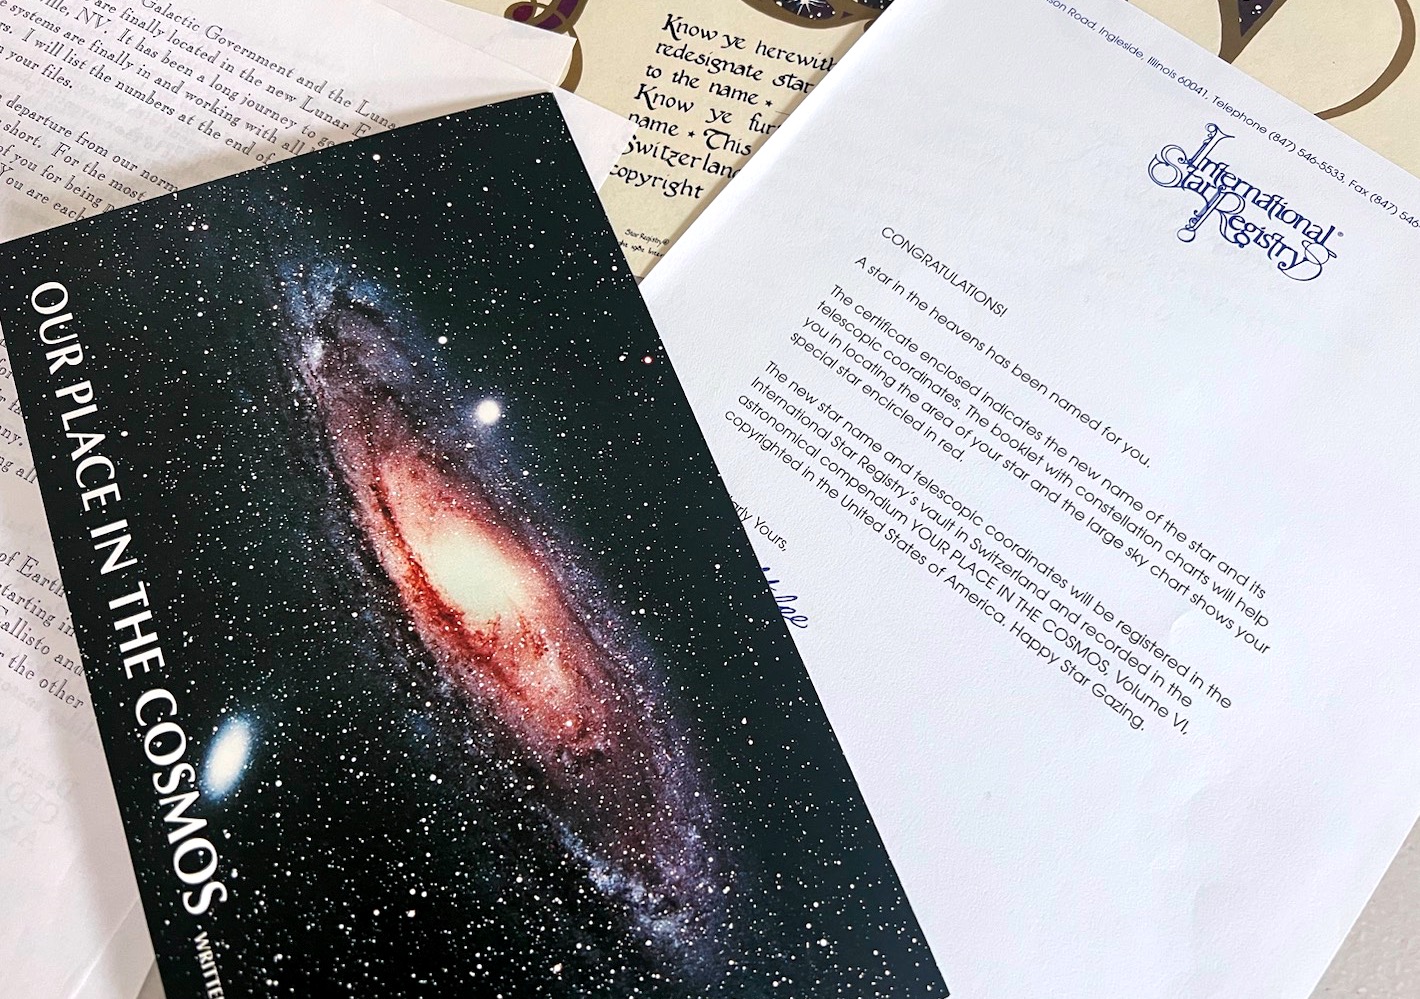 are finally located in the new Luna
Galactic Government and the Luna
ville, NV. It has been a long journey to ge
e systems are finally in and working with all
rs. I will list the numbers at the end of
n your files.
departure from our norm
short. For the most
of you for being
You are each
any.
ng all
of Earth
starting in
Callisto and
r the other
Know ye herewith
redesignate star
to the name ★
Know ye fur
name ★ This
Switzerland
copyright
Star Registry®
OUR PLACE IN THE COSMOS WRITTE
son Road, Ingleside, Illinois 60041, Telephone (847) 546-5533, Fax (847) 546-
International
Star Registry®
CONGRATULATIONS!
A star in the heavens has been named for you.
The certificate enclosed indicates the new name of the star and its
telescopic coordinates. The booklet with constellation charts will help
you in locating the area of your star and the large sky chart shows your
special star encircled in red.
The new star name and telescopic coordinates will be registered in the
International Star Registry's vault in Switzerland and recorded in the
astronomical compendium YOUR PLACE IN THE COSMOS, Volume VI,
copyrighted in the United States of America. Happy Star Gazing.
rly Yours,